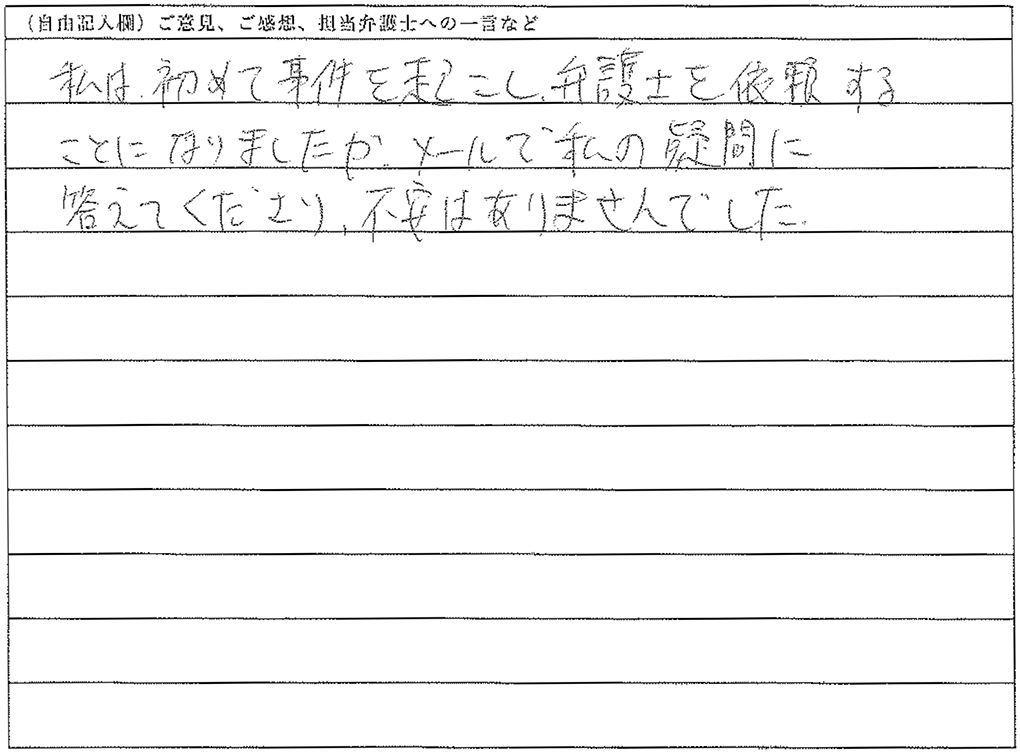 （自由記入欄）ご意見、ご感想、担当弁護士への一言など
私は、初めて事件を起こし、弁護士を依頼する
ことになりましたが、メールで私の疑問に
答えてくださり、不安はありませんでした。